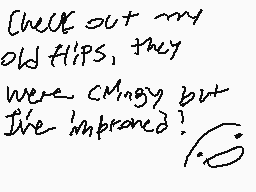 Check out my
old flips, they
were cringy but
I've improved!